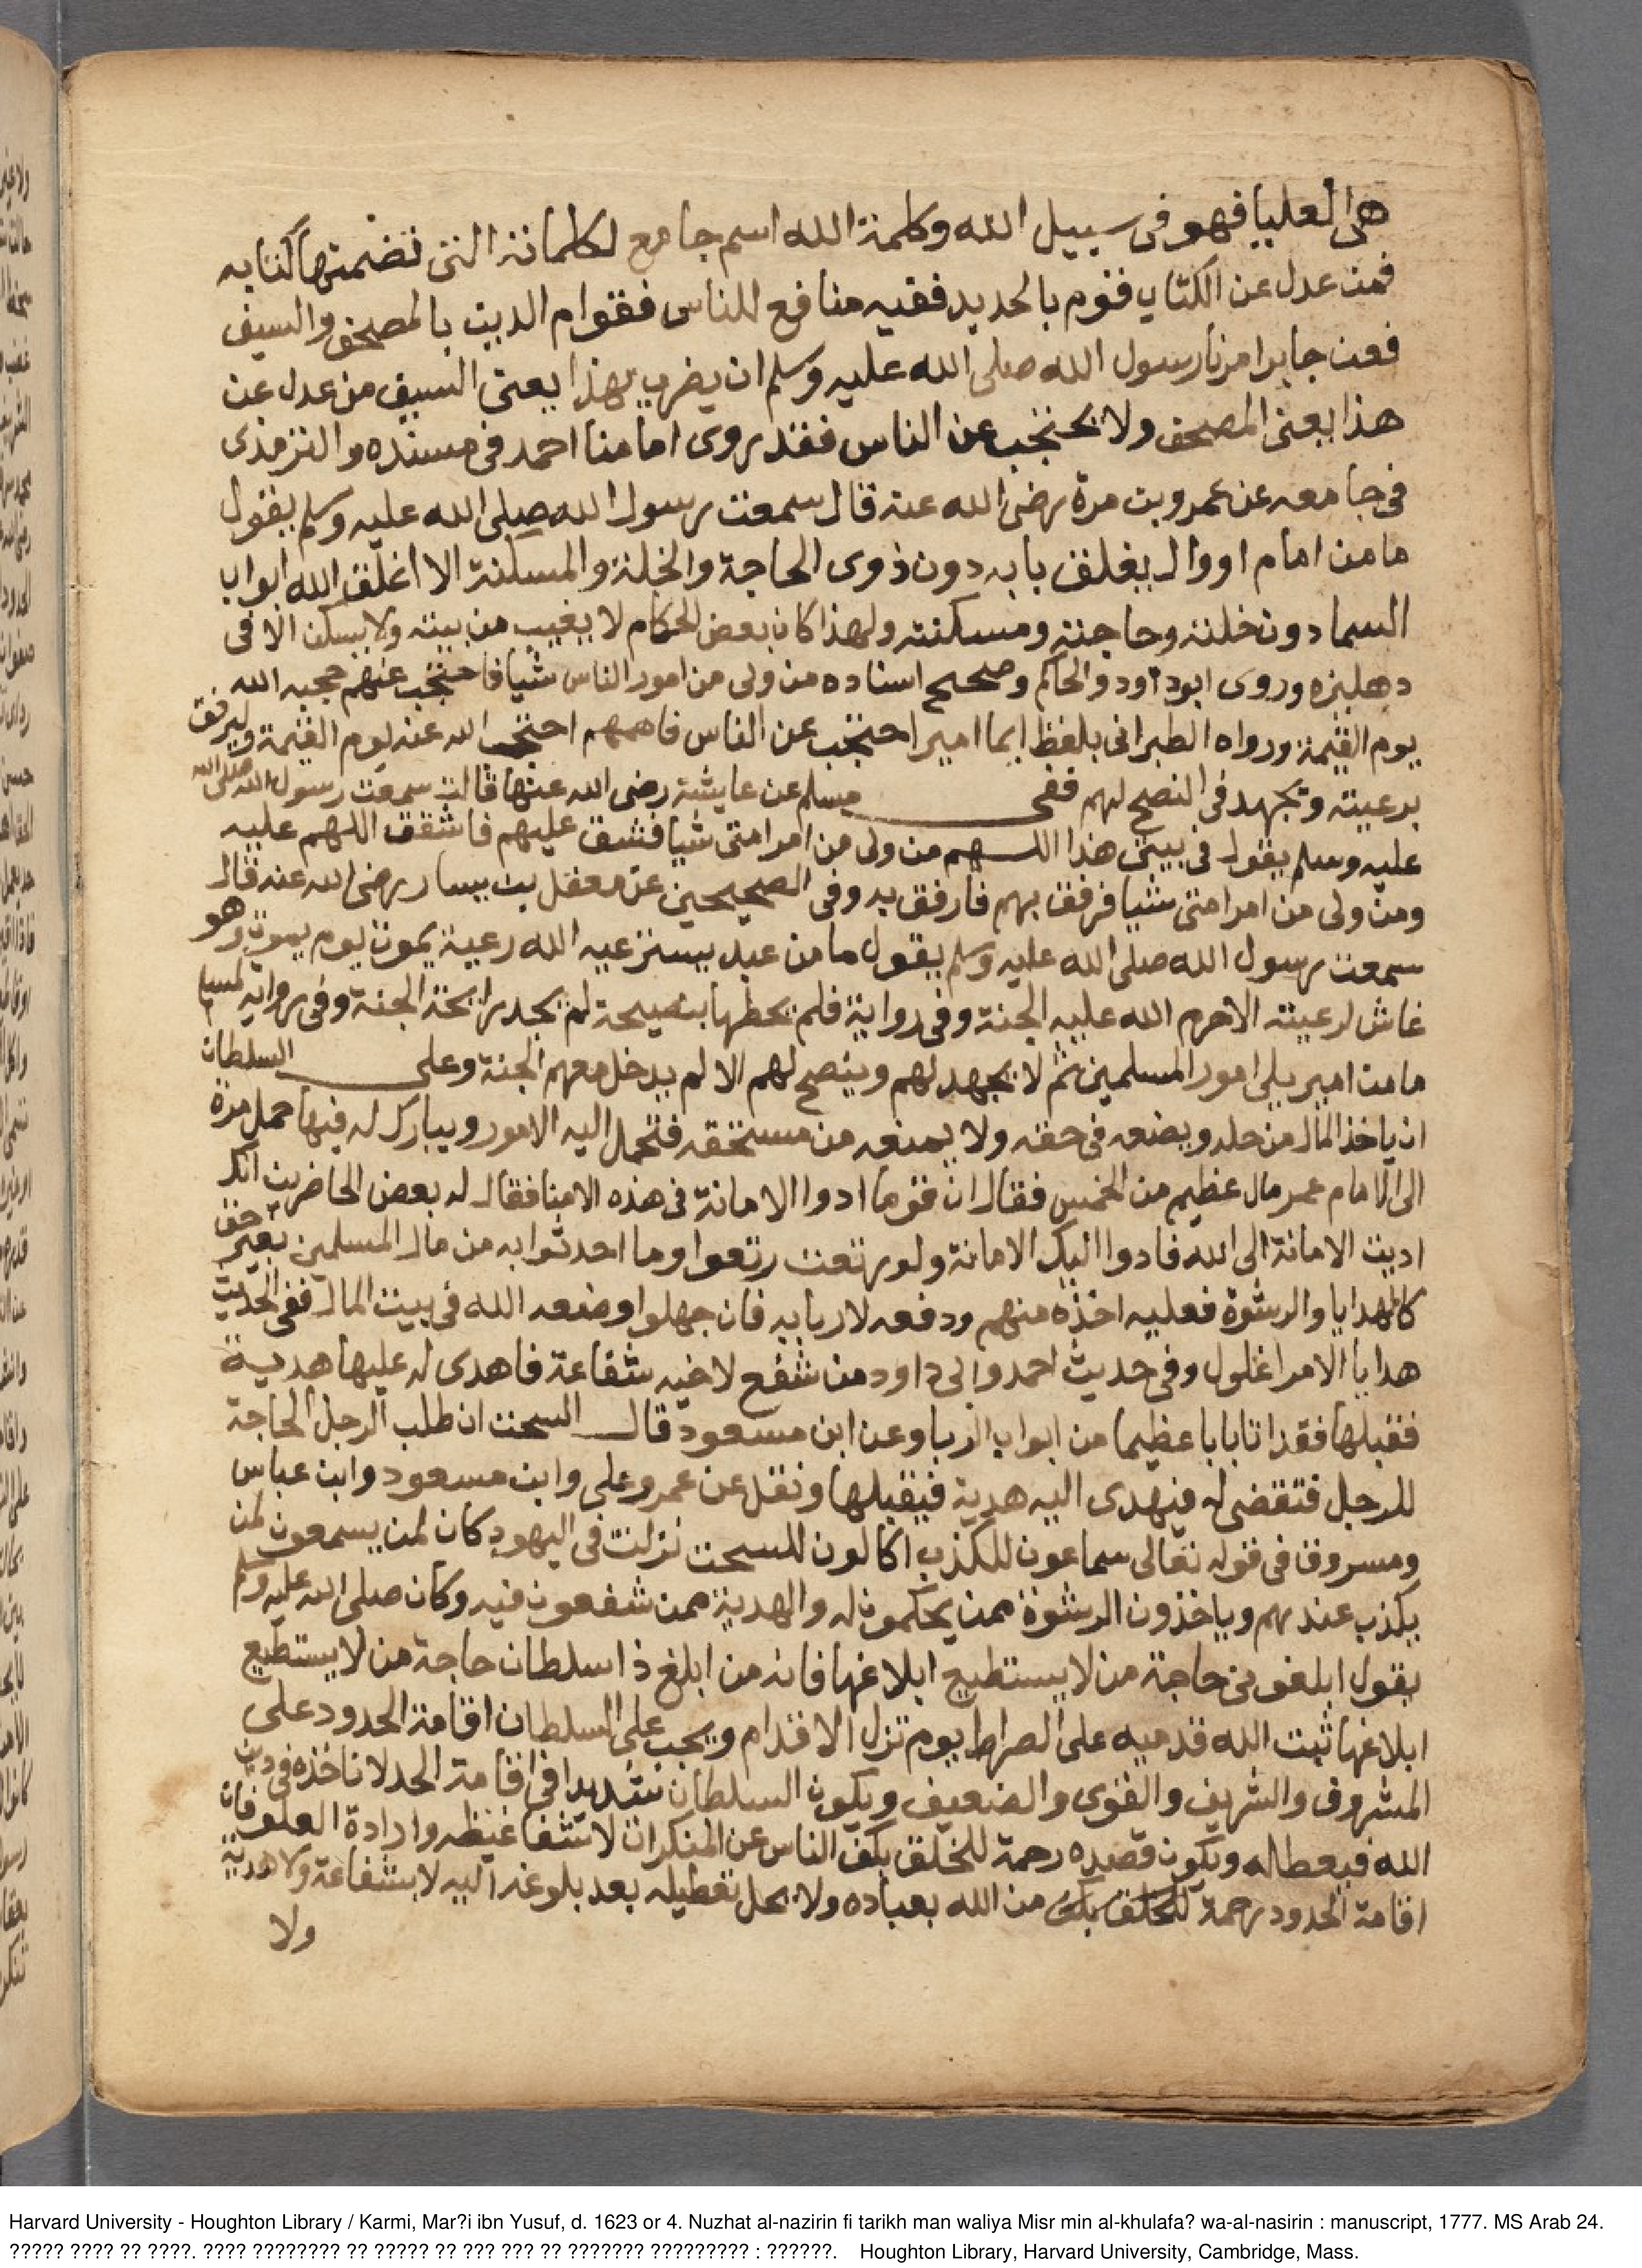 هى العليا فهو فى سبيل الله وكلمة الله اسم جامع لكلماته التى تضمنها كتابه
فمن عدل عن الكتاب قوم بالحديد ففيه منافع للناس فقوام الدين بالمصحف والسيف
فعن جابر امرنا رسول الله صلى الله عليه وسلم ان يضرب بهذا يعنى السيف من عدل عن
هذا يعنى المصحف ولا يحتجب عن الناس فقد روى امامنا احمد فى مسنده والترمذى
فى جامعه عن عمرو بن مرة رضى الله عنه قال سمعت رسول الله صلى الله عليه وسلم يقول
ما من امام او وال يغلق بابه دون ذوى الحاجة والخلة والمسكنة الا اغلق الله ابواب
السما دون خلته وحاجته ومسكنته ولهذا كان بعض الحكام لا يغيب من بيته ولا يسكن الا فى
دهليزه وروى ابو داود والحاكم وصحح اسناده من ولى من امور الناس شيا فاحتجب عنهم حجبه الله
يوم القيمة ورواه الطبرانى بلفظ ايما امير احتجب عن الناس فاهمهم احتجب الله عنه يوم القيمة وليرفق
برعيته ويجهد فى النصح لهم ففى مسلم عن عايشة رضى الله عنها قالت سمعت رسول الله صلى الله
عليه وسلم يقول فى بيتى هذا اللهم من ولى من امر امتى شيا فشق عليهم فاشقق اللهم عليه
ومن ولى من امر امتى شيا فرفق بهم فارفق به وفى الصحيحين عن معقل بن يسار رضى الله عنه قال
سمعت رسول الله صلى الله عليه وسلم يقول ما من عبد يسترعيه الله رعية يموت يوم يموت وهو
غاش لرعيته الا حرم الله عليه الجنة وفى رواية فلم يحطها بنصيحة لم يجد رايحة الجنة وفى رواية لمسلم
ما من امير يلى امور المسلمين ثم لا يجهد لهم وينصح لهم الا لم يدخل معهم الجنة وعلى السلطان
ان ياخذ المال من حله ويضعه فى حقه ولا يمنعه من مستحقه فتحمل اليه الامور ويبارك له فيها حمل مرة
الى الامام عمر مال عظيم من الخمس فقال ان قوما ادوا الامانة فى هذه الامنا فقال له بعض الحاضرين انك
اديت الامانة الى الله فادوا اليك الامانة ولو رتعت رتعوا وما احدثوا به من مال المسلمين بغير حق
كالهدايا والرشوة فعليه اخذه منهم ودفعه لاربابه فان جهلوا وضعه الله فى بيت المال ففى الحديث
هدايا الامرا غلول وفى حديث احمد وابى داود من شفع لاخيه شفاعة فاهدى له عليها هدية
فقبلها فقد اتا بابا عظيما من ابواب الربا وعن ابن مسعود قال السحت ان طلب الرجل الحاجة
للرجل فتقضى له فيهدى اليه هدية فيقبلها ونقل عن عمر وعلى وابن مسعود وابن عباس
ومسروق فى قوله تعالى سماعون للكذب اكالون للسحت نزلت فى اليهود كان لمن يسمعون لمن
يكذب عندهم وياخذون الرشوة ممن يحكمون له والهدية ممن شفعون فيه وكان صلى الله عليه وسلم
يقول ابلغونى حاجة من لا يستطيع ابلاغها فانه من ابلغ ذا سلطان حاجة من لا يستطيع
ابلاغها ثبت الله قدميه على الصراط يوم تزل الاقدام ويجب على السلطان اقامة الحدود على
المشروف والشريف والقوى والضعيف ويكون السلطان شديدا فى اقامة الحد لا تاخذه فى دين
الله فيعطاله ويكون قصده رحمة للخلق بكف الناس عن المنكرات لا تشفا غيظه وارادة العلو فان
اقامة الحدود رحمة من الله بعباده ولا يحل تعطيله بعد بلوغه اليه لا بشفاعة ولا هدية
ولا
Harvard University - Houghton Library / Karmi, Mar?i ibn Yusuf, d. 1623 or 4. Nuzhat al-nazirin fi tarikh man waliya Misr min al-khulafa? wa-al-nasirin : manuscript, 1777. MS Arab 24.
????? ???? ?? ????. ???? ???????? ?? ????? ?? ??? ??? ?? ??????? ????????? : ??????. Houghton Library, Harvard University, Cambridge, Mass.